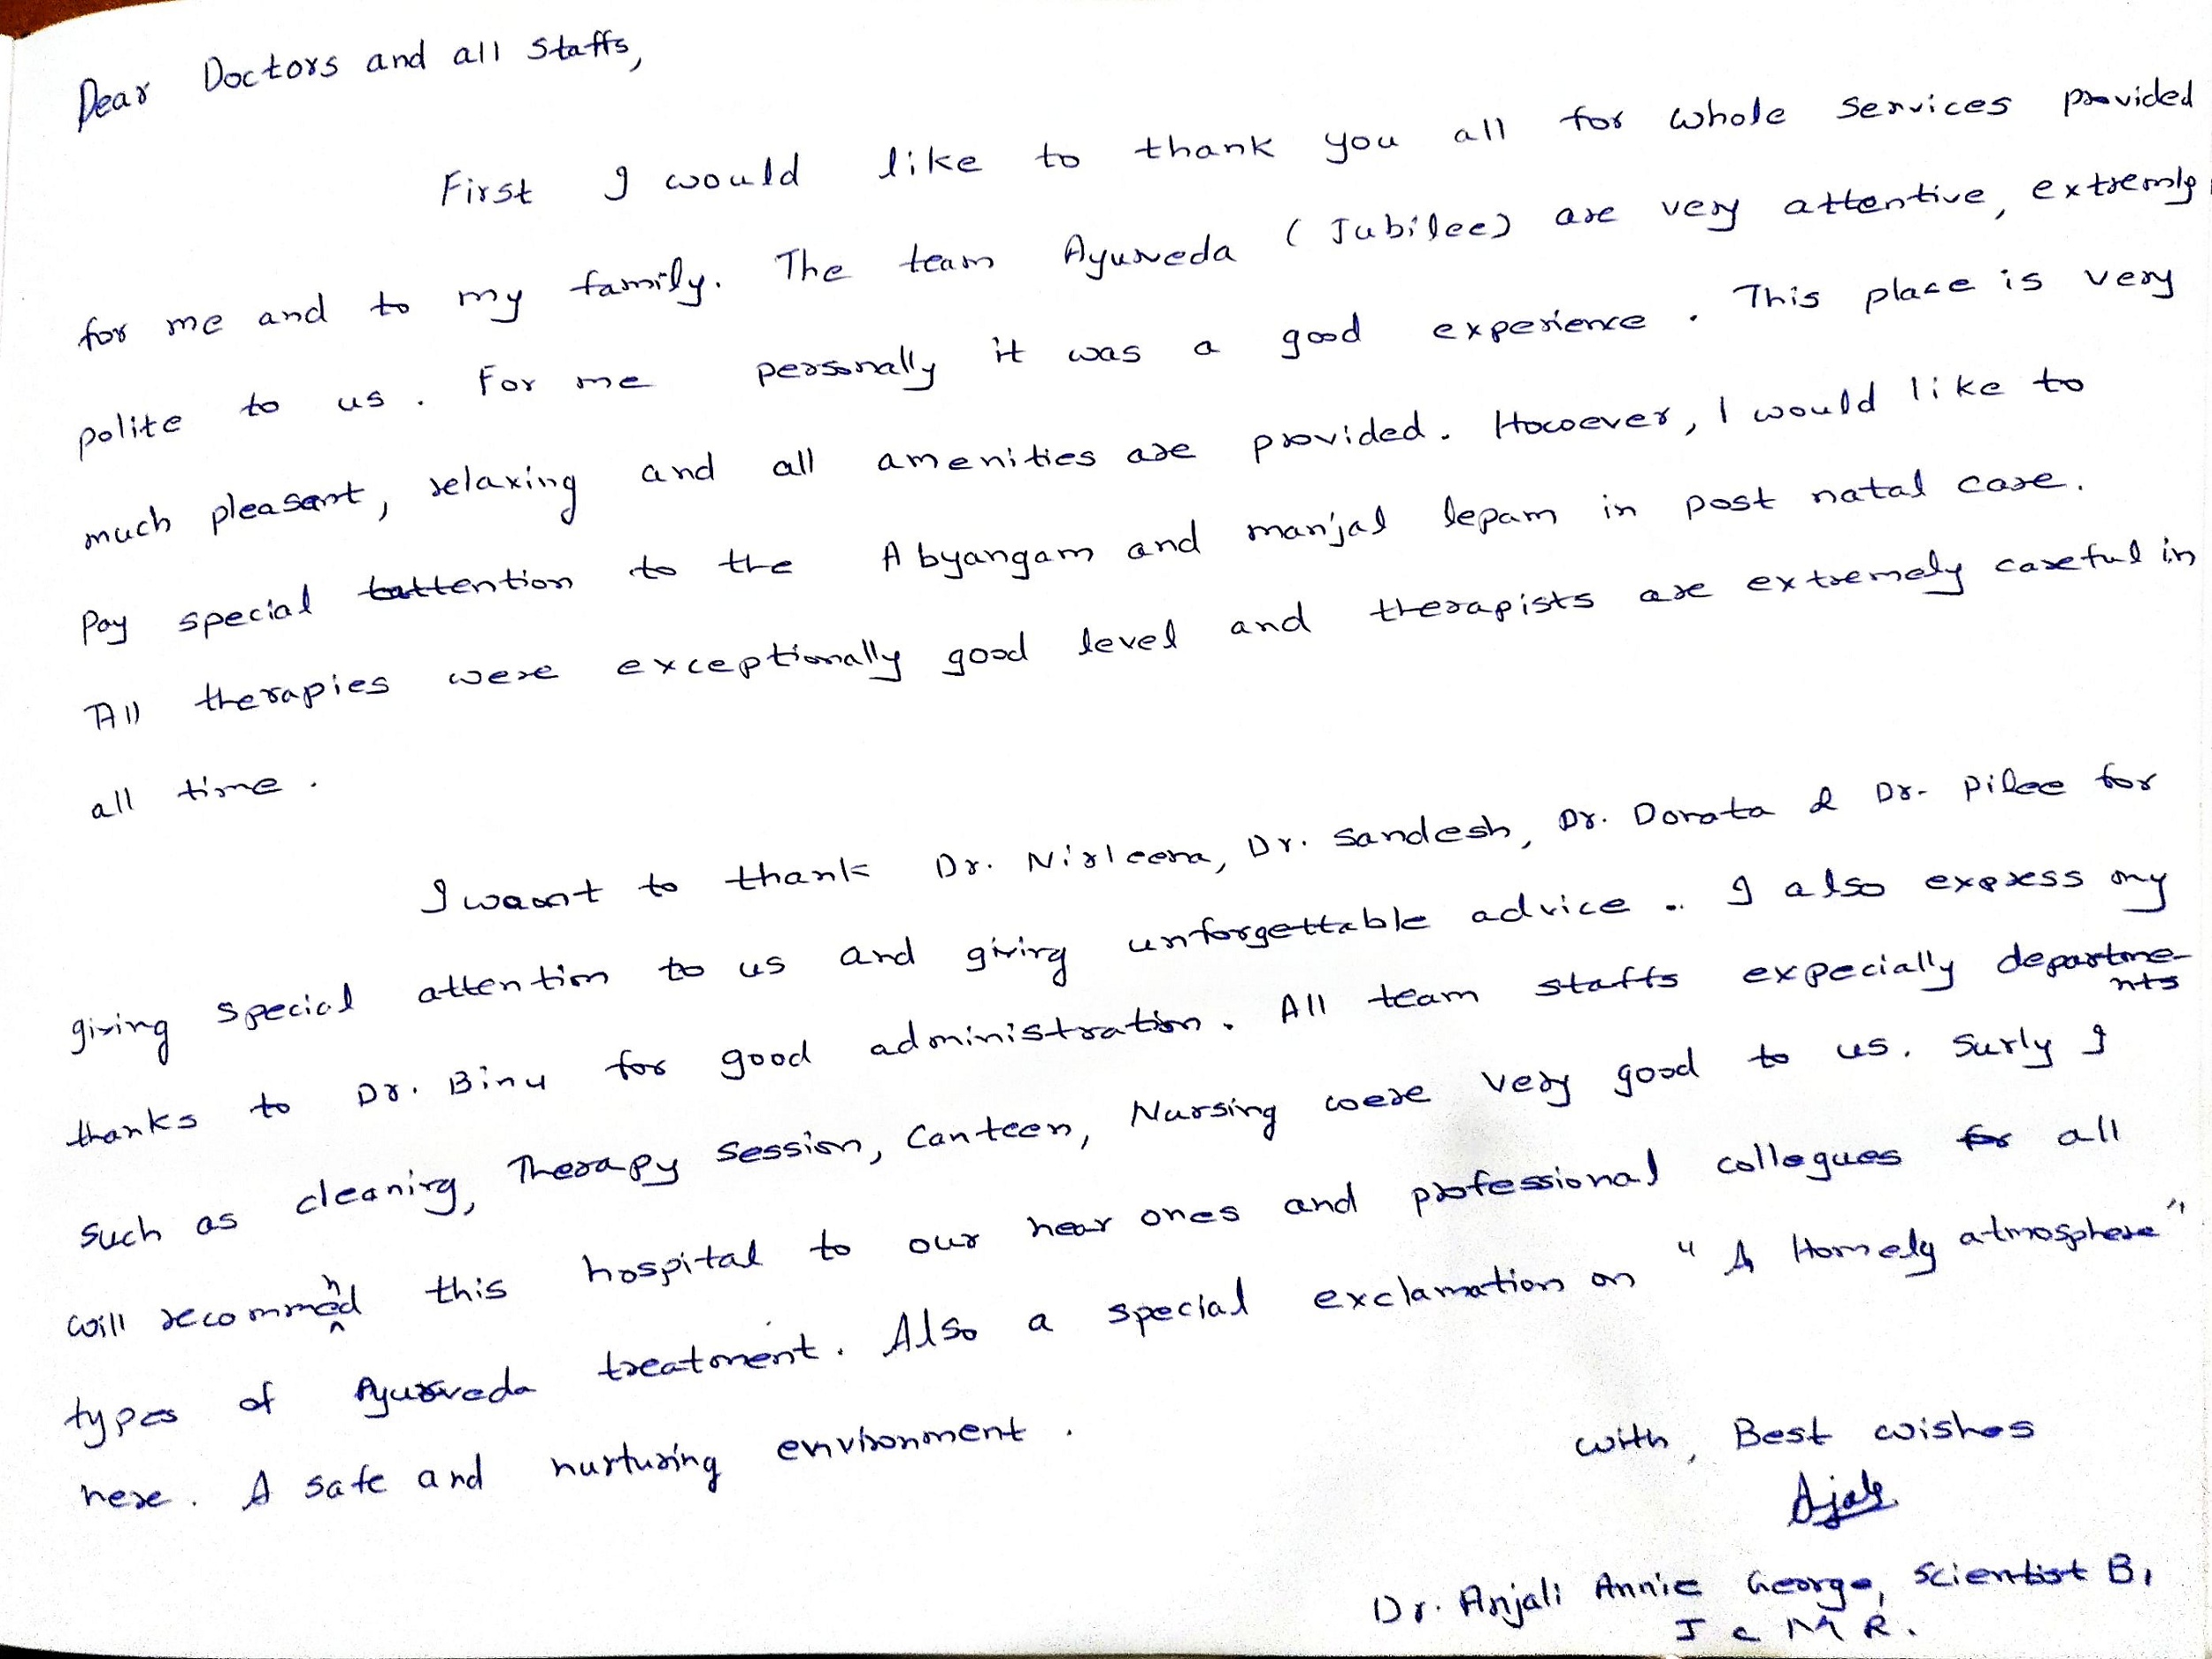 Dear Doctors and all Staffs,
First I would like to thank you all for whole Services provided
for me and to my family. The team Ayurveda (Jubilee) are very attentive, extremly
polite to us. For me personally it was a good experience. This place is very
much pleasant, relaxing and all amenities are provided. However, I would like to
Pay special attention to the Abyangam and manjal lepam in post natal care.
All therapies were exceptionally good level and therapists are extremely careful in
all time.
I want to thank Dr. Nirleena, Dr. Sandesh, Dr. Dorata & Dr. Pilee for
giving special attention to us and giving unforgettable advice. I also express my
thanks to Dr. Binu for good administration. All team staffs expecially departme-
nts
such as cleaning, Therapy session, Canteen, Nursing were very good to us. Surly I
will recommend this hospital to our near ones and professional collegues for all
types of Ayurveda treatment. Also a special exclamation on "A Homely atmosphere"
here. A safe and nurturing environment.
with, Best wishes
Dr. Anjali Annie George, Scientist B,
ICMR.